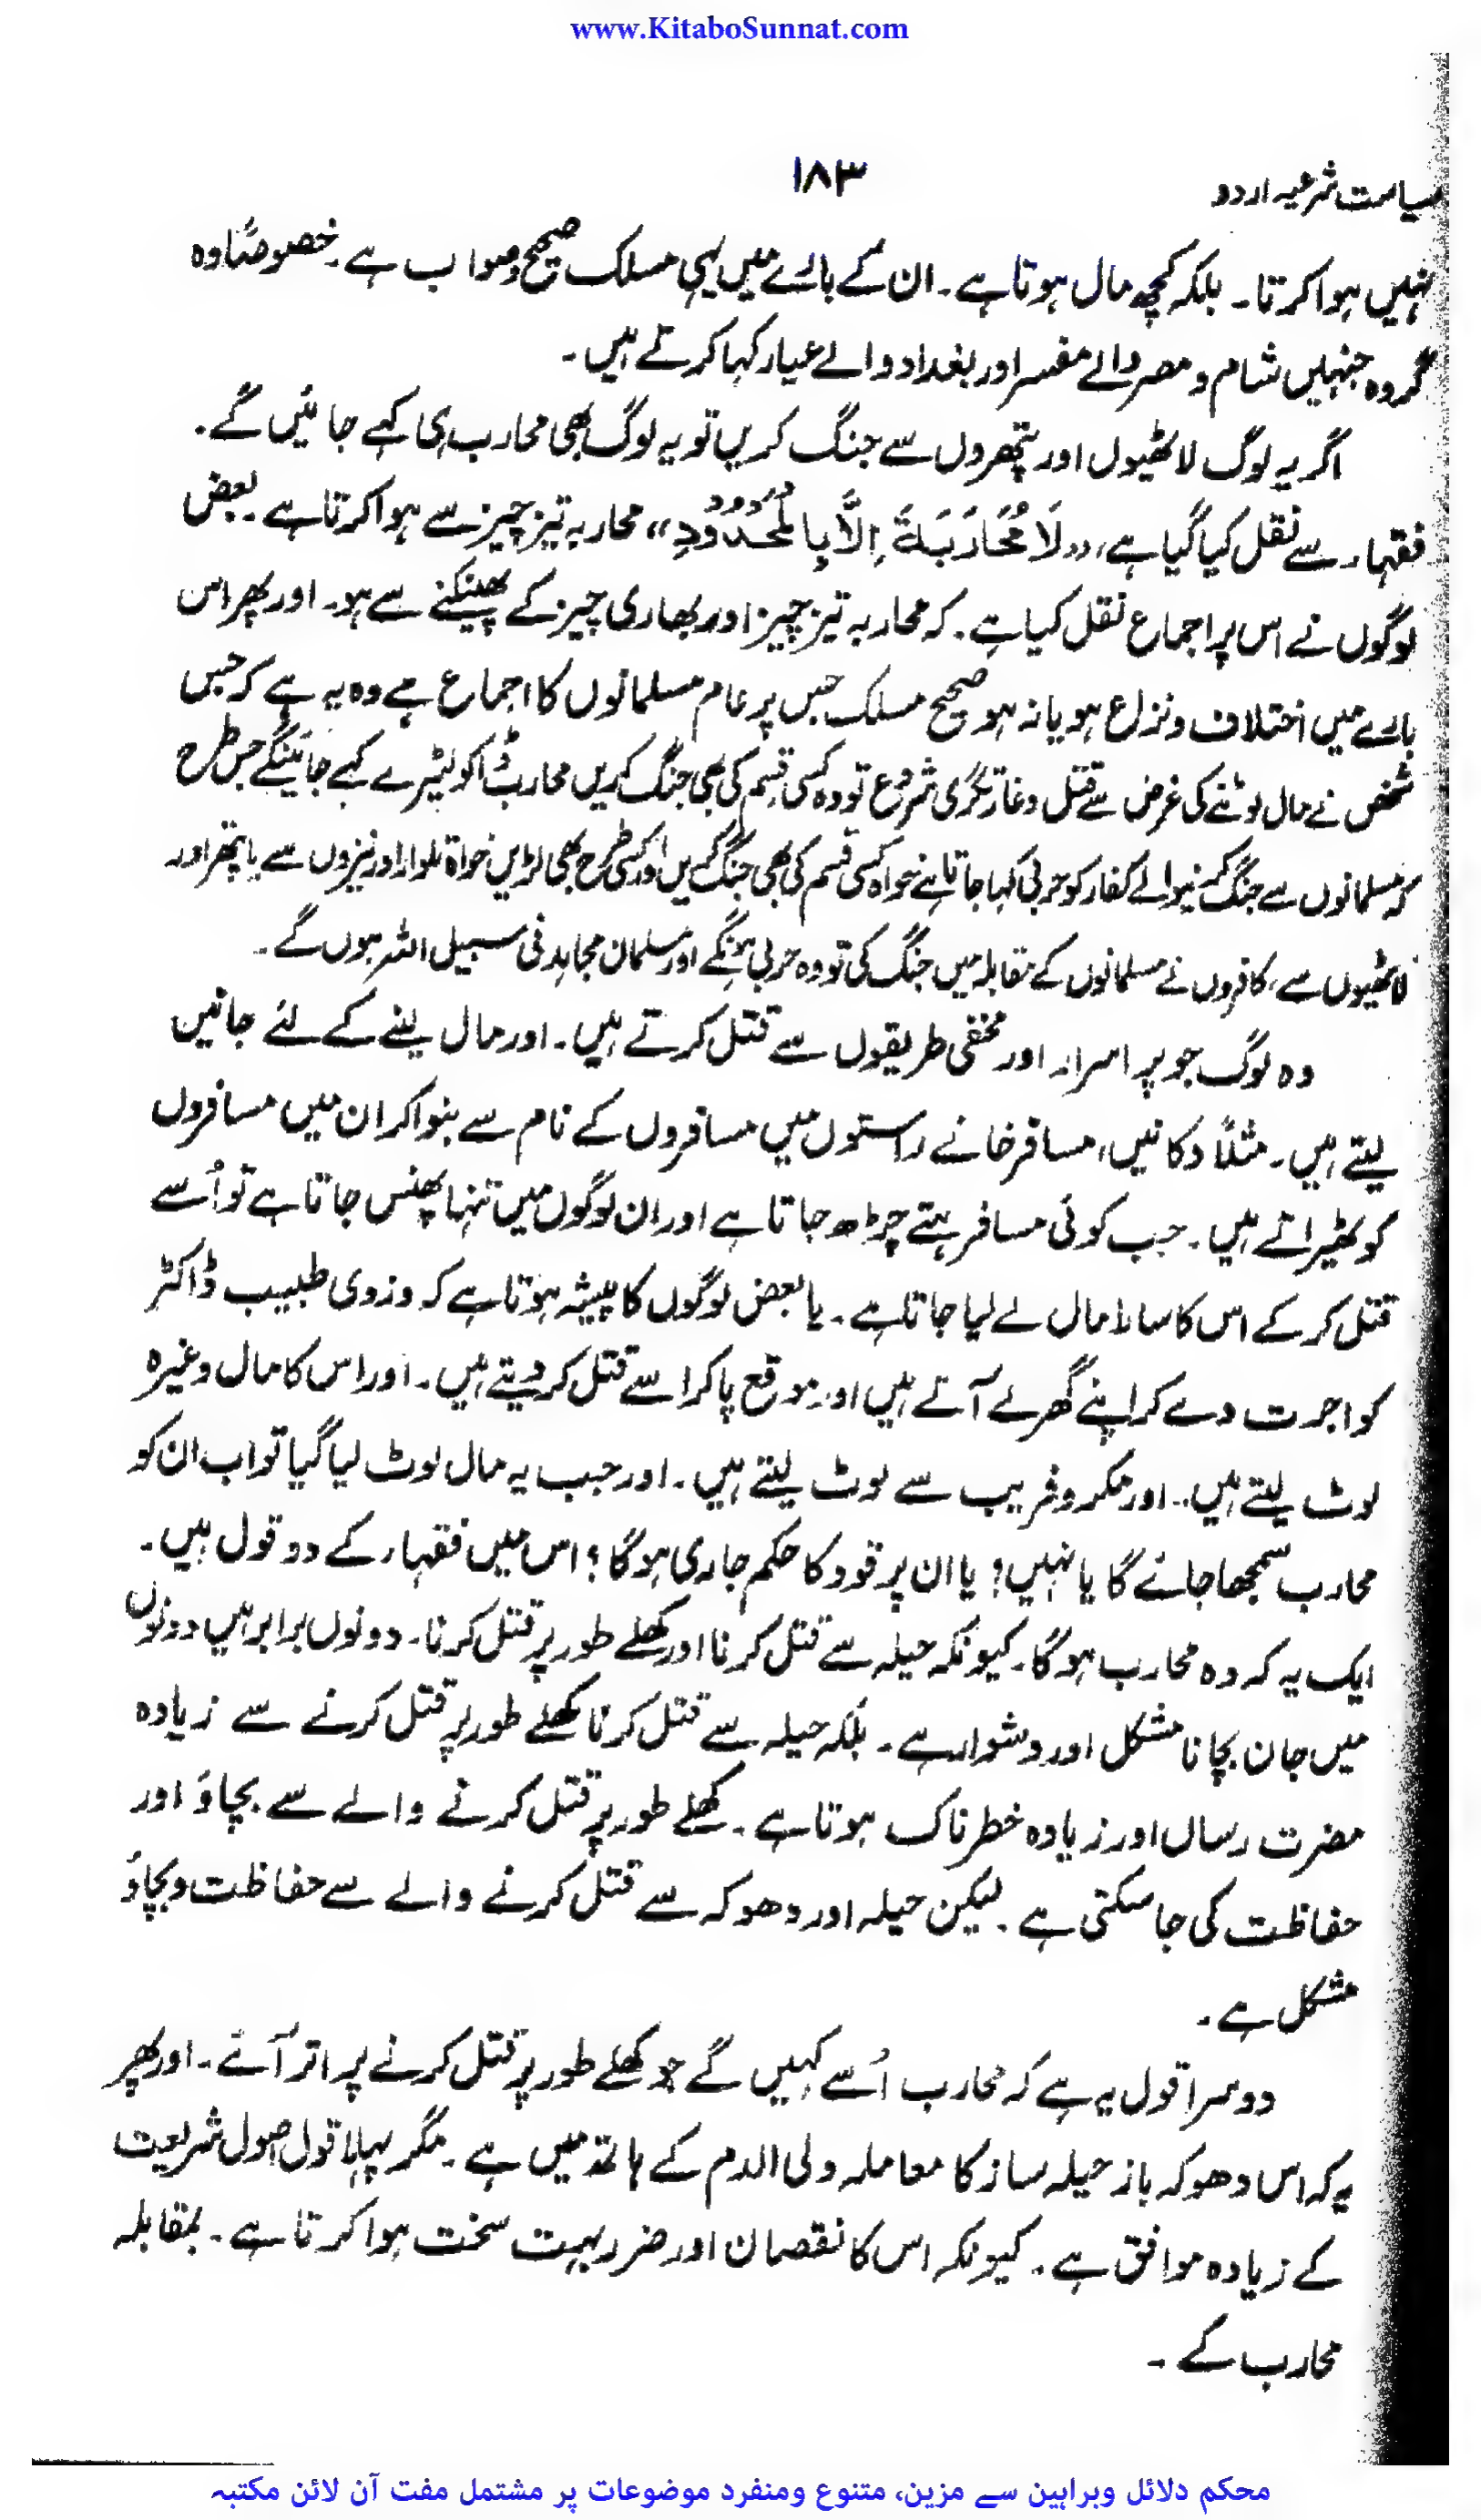 www.KitaboSunnat.com
سیاست شرعیہ اردو
۱۸۳
نہیں ہوا کرتا۔ بلکہ کچھ مال ہوتا ہے۔ ان کے بارے میں یہی مسلک صحیح و صواب ہے۔ خصوصًا وہ
گروہ جنہیں شام و مصر والے مفسر اور بغداد والے عیار کہا کرتے ہیں۔
اگر یہ لوگ لاٹھیوں اور پتھروں سے جنگ کریں تو یہ لوگ بھی محارب ہی کہے جائیں گے۔
فقہاء سے نقل کیا گیا ہے، «لَا مُحَارَبَةَ اِلَّا بِالْمُحَدُوْدِ» محاربہ تیز چیز سے ہوا کرتا ہے۔ بعض
لوگوں نے اس پر اجماع نقل کیا ہے۔ کہ محاربہ تیز چیز اور بھاری چیز کے پھینکنے سے ہو۔ اور پھر اس
بارے میں اختلاف و نزاع ہو یا نہ ہو صحیح مسلک جس پر عام مسلمانوں کا اجماع ہے وہ یہ ہے کہ جس
شخص نے مال لوٹنے کی غرض سے قتل و غارتگری شروع تو وہ کسی قسم کی بھی جنگ کریں محارب ڈاکو لیٹرے کہے جائینگے جس طرح
کہ مسلمانوں سے جنگ کرنیوالے کفار کو حربی کہا جاتا ہے خواہ کسی قسم کی بھی جنگ کریں اور کسی طرح بھی لڑیں خواہ تلوار اور نیزوں سے یا پتھر اور
لاٹھیوں سے، کافروں نے مسلمانوں کے مقابلہ میں جنگ کی تو وہ حربی ہونگے اور مسلمان مجاہد فی سبیل اللہ ہوں گے۔
وہ لوگ جو پر اسرار اور مخفی طریقوں سے قتل کرتے ہیں۔ اور مال لینے کے لئے جانیں
لیتے ہیں۔ مثلاً دکانیں، مسافر خانے راستوں میں مسافروں کے نام سے بنوا کر ان میں مسافروں
کو ٹھیراتے ہیں۔ جب کوئی مسافر ہتے چڑھ جاتا ہے اور ان لوگوں میں تنہا پھنس جاتا ہے تو اُسے
قتل کر کے اس کا سارا مال لے لیا جاتا ہے۔ یا بعض لوگوں کا پیشہ ہوتا ہے کہ وزوی طبیب ڈاکٹر
کو اجرت دے کر اپنے گھر لے آتے ہیں اور موقع پا کر اسے قتل کر دیتے ہیں۔ اور اس کا مال وغیرہ
لوٹ لیتے ہیں۔ اور مکر و فریب سے لوٹ لیتے ہیں۔ اور جب یہ مال لوٹ لیا گیا تو اب ان کو
محارب سمجھا جائے گا یا نہیں؟ یا ان پر قود کا حکم جاری ہوگا؟ اس میں فقہاء کے دو قول ہیں۔
ایک یہ کہ وہ محارب ہوگا۔ کیونکہ حیلہ سے قتل کرنا اور کھلے طور پر قتل کرنا۔ دونوں برابر ہیں دونوں
میں جان بچانا مشکل اور دشوار ہے۔ بلکہ حیلہ سے قتل کرنا کھلے طور پر قتل کرنے سے زیادہ
مضرت رساں اور زیادہ خطرناک ہوتا ہے۔ کھلے طور پر قتل کرنے والے سے بچاؤ اور
حفاظت کی جا سکتی ہے۔ لیکن حیلہ اور دھوکہ سے قتل کرنے والے سے حفاظت و بچاؤ
مشکل ہے۔
دوسرا قول یہ ہے کہ محارب اُسے کہیں گے جو کھلے طور پر قتل کرنے پر اتر آئے۔ اور پھر
یہ کہ اس دھوکہ باز حیلہ ساز کا معاملہ ولی الدم کے ہاتھ میں ہے۔ مگر پہلا قول اصول شریعت
کے زیادہ موافق ہے۔ کیونکہ اس کا نقصان اور ضرر بہت سخت ہوا کرتا ہے۔ بمقابلہ
محارب کے۔
محکم دلائل وبراہین سے مزین، متنوع ومنفرد موضوعات پر مشتمل مفت آن لائن مکتبہ